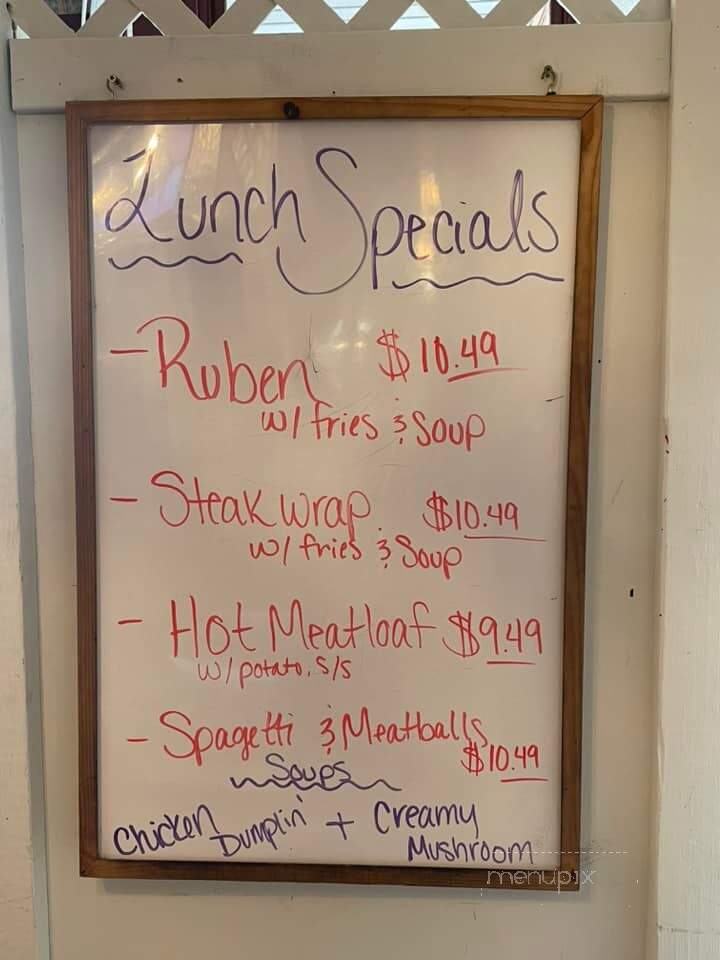 Lunch Specials
- Ruben $10.49
w/ fries & Soup
- Steak wrap $10.49
w/ fries & Soup
- Hot Meatloaf $9.49
w/ potato, s/s
- Spagetti & Meatballs
$10.49
Soups
Chicken Dumplin' + Creamy Mushroom
menupix